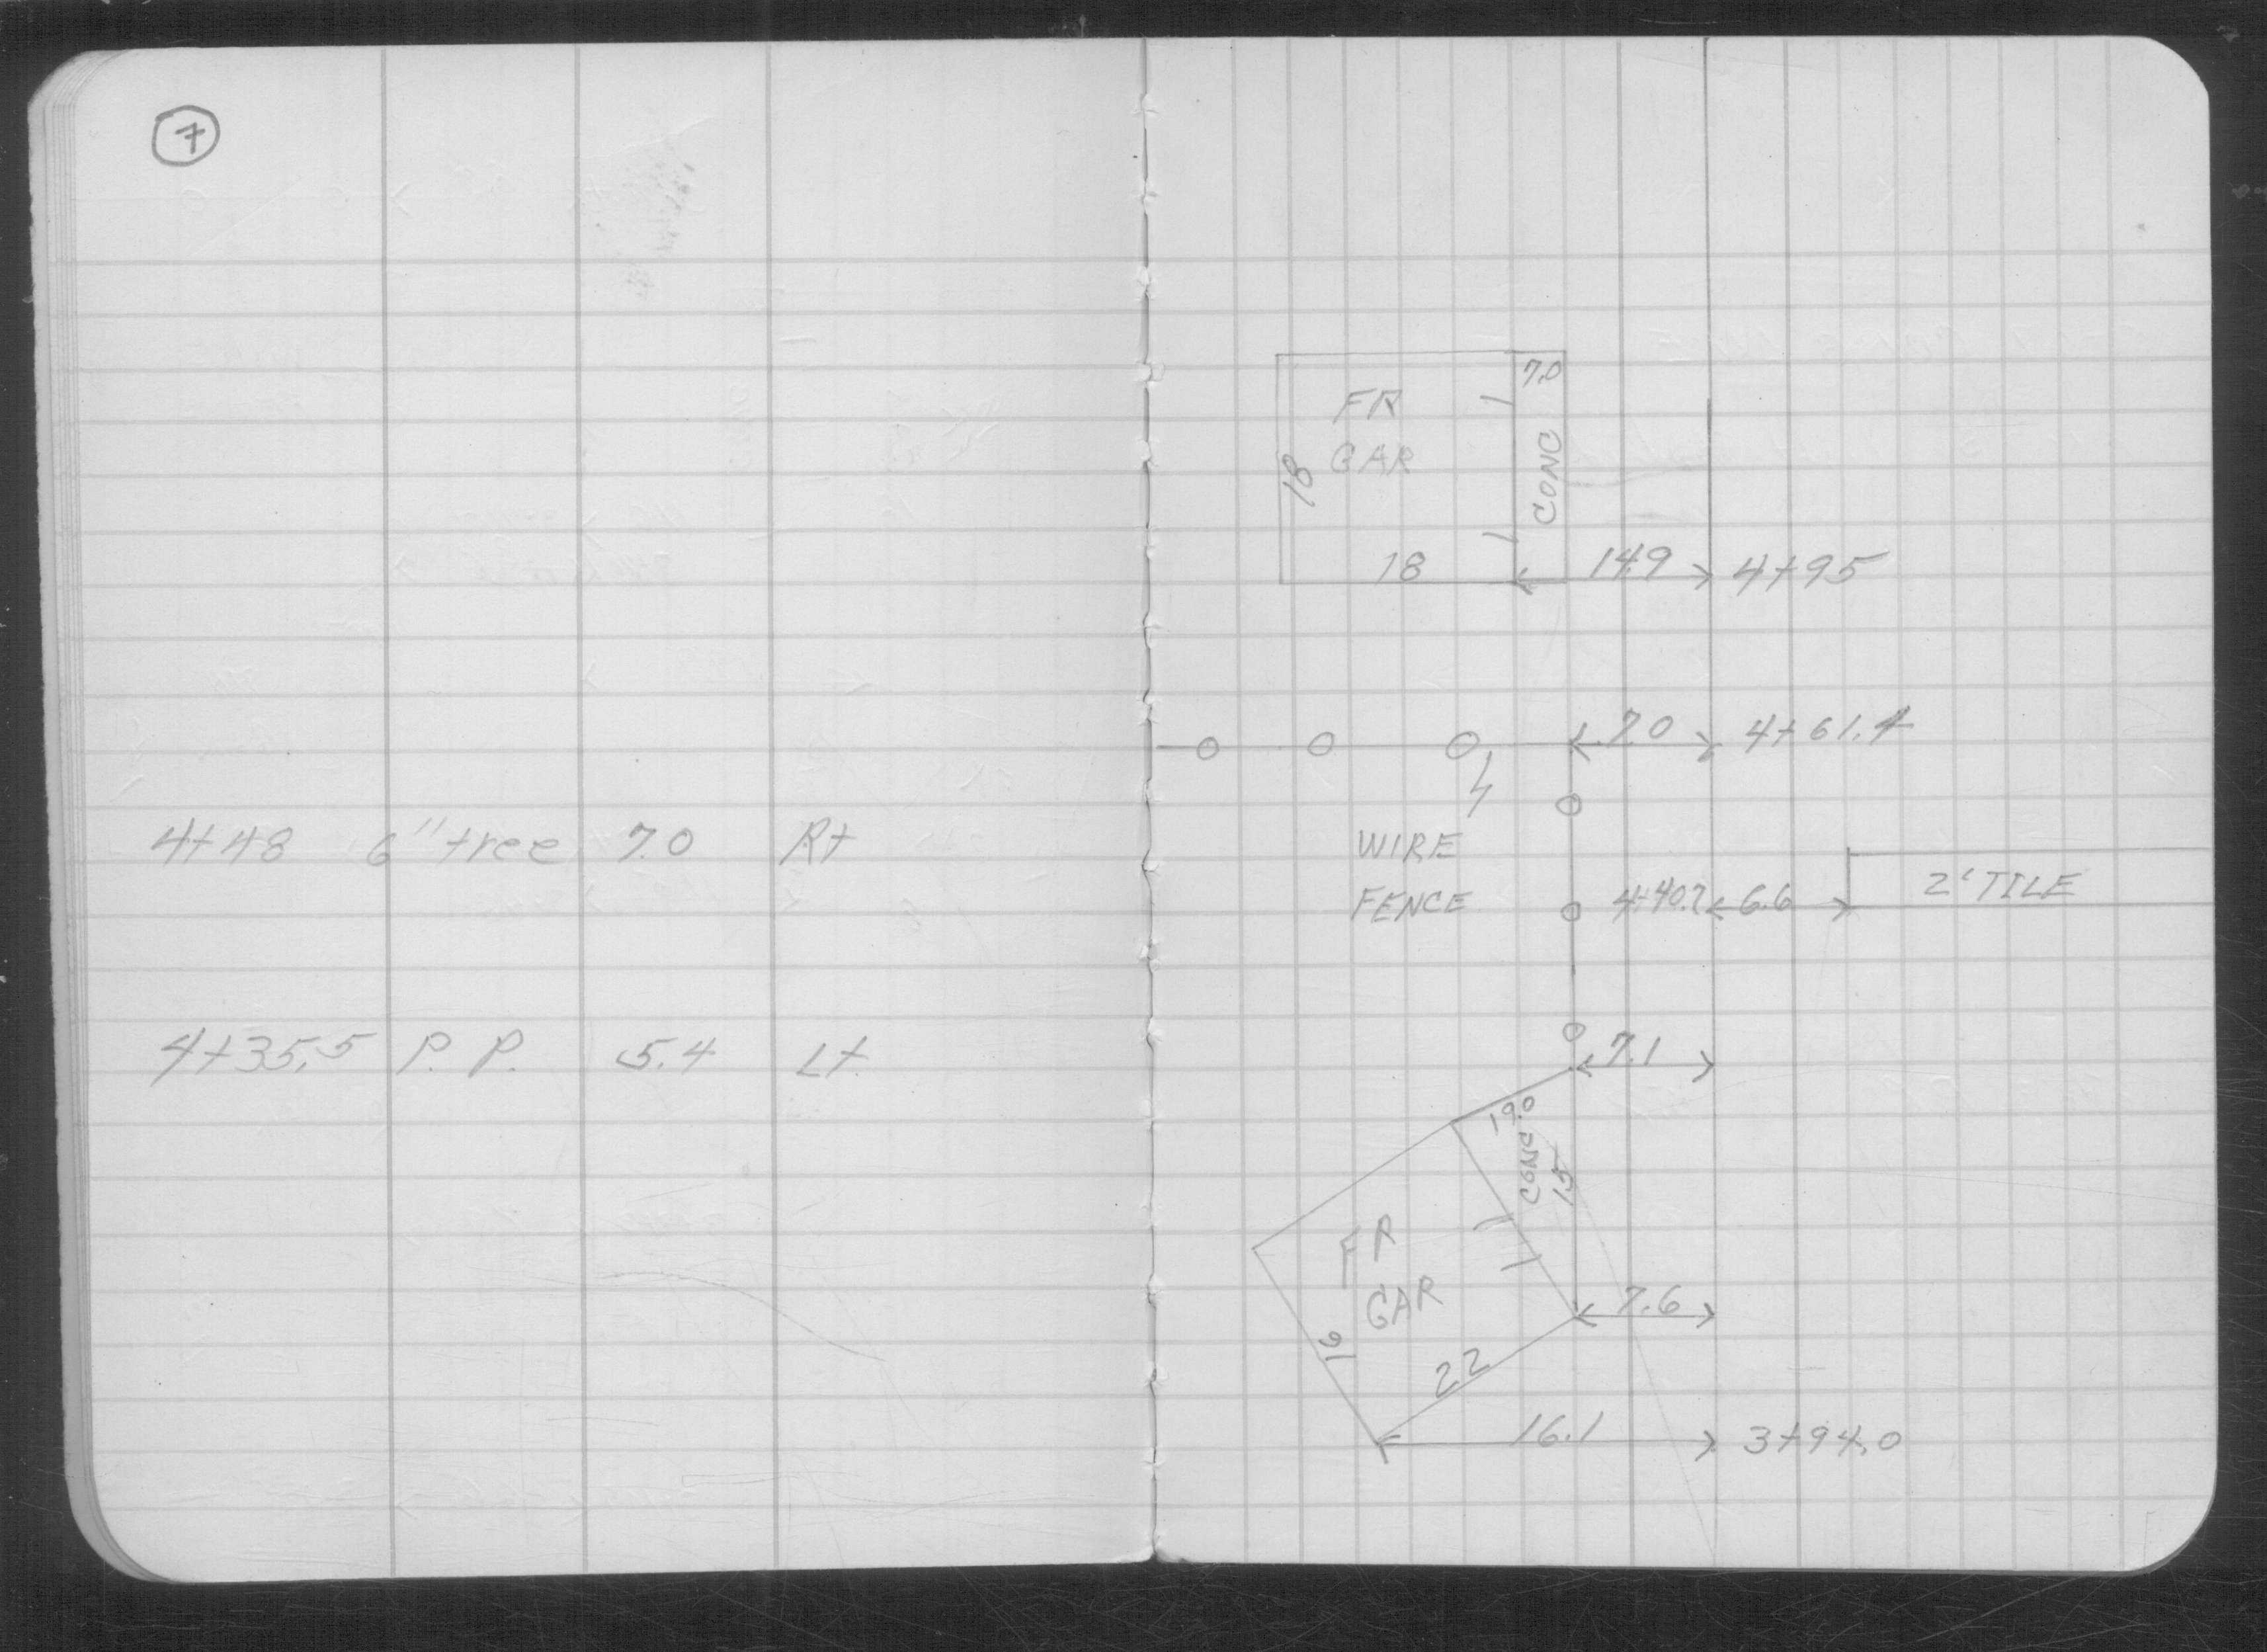 7
4+48 6" tree 7.0 Rt
4+35.5 P.P. 5.4 Lt.
7.0
FR
GAR
CONC
18
18
14.9 4+95
7.0 4+61.4
WIRE
FENCE
4+40.7 6.6 2' TILE
7.1
19.0
CONC
15
FR
GAR
7.6
16
22
16.1 3+94.0